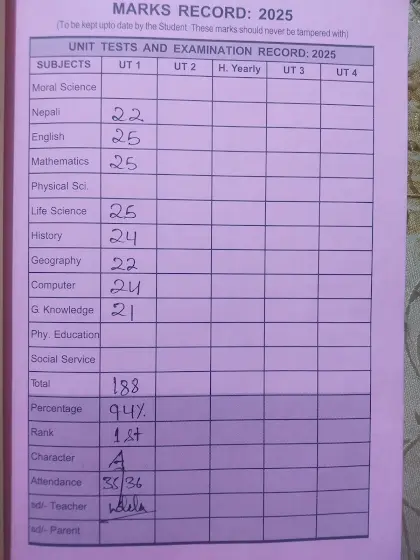 MARKS RECORD: 2025
(To be kept upto date by the Student. These marks should never be tampered with)
UNIT TESTS AND EXAMINATION RECORD: 2025
SUBJECTS UT 1 UT 2 H. Yearly UT 3 UT 4
Moral Science
Nepali 22
English 25
Mathematics 25
Physical Sci.
Life Science 25
History 24
Geography 22
Computer 24
G. Knowledge 21
Phy. Education
Social Service
Total 188
Percentage 94%
Rank 1st
Character A
Attendance 35/36
sd/- Teacher
sd/- Parent